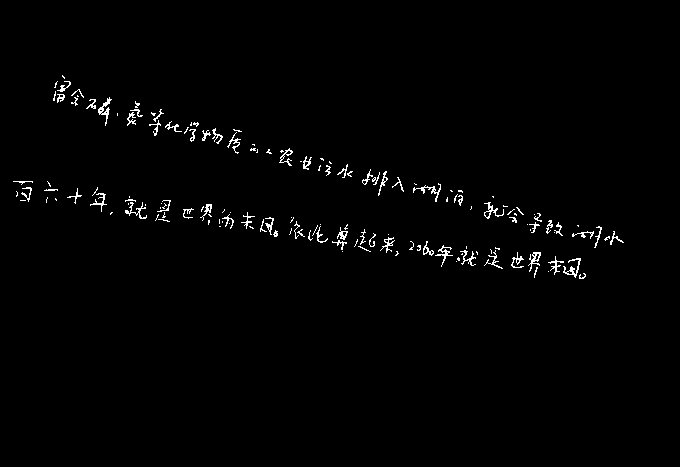 富含磷、氮等化学物质的工农业污水排入湖泊，就会导致湖水
百六十年，就是世界的末日。依此算起来，2060年就是世界末日。